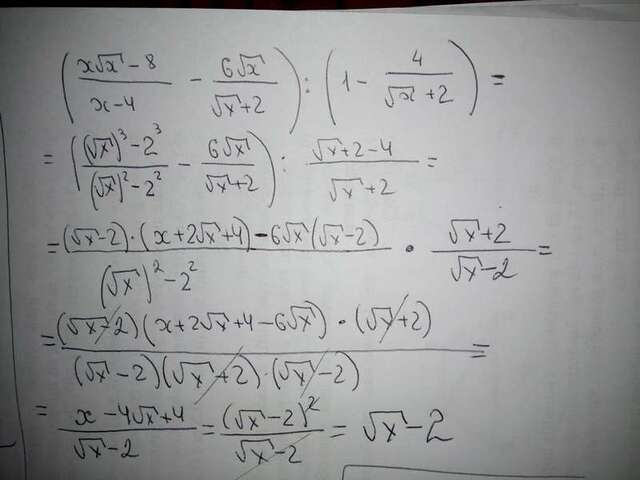 ((x√x - 8)/(x - 4) - 6√x/(√x + 2)) : (1 - 4/(√x + 2)) =
= (((√x)³ - 2³)/((√x)² - 2²) - 6√x/(√x + 2)) : (√x + 2 - 4)/(√x + 2) =
= ((√x - 2)·(x + 2√x + 4) - 6√x(√x - 2))/((√x)² - 2²) · (√x + 2)/(√x - 2) =
= ((√x - 2)(x + 2√x + 4 - 6√x)·(√x + 2))/((√x - 2)(√x + 2)·(√x - 2)) =
= (x - 4√x + 4)/(√x - 2) = (√x - 2)²/(√x - 2) = √x - 2